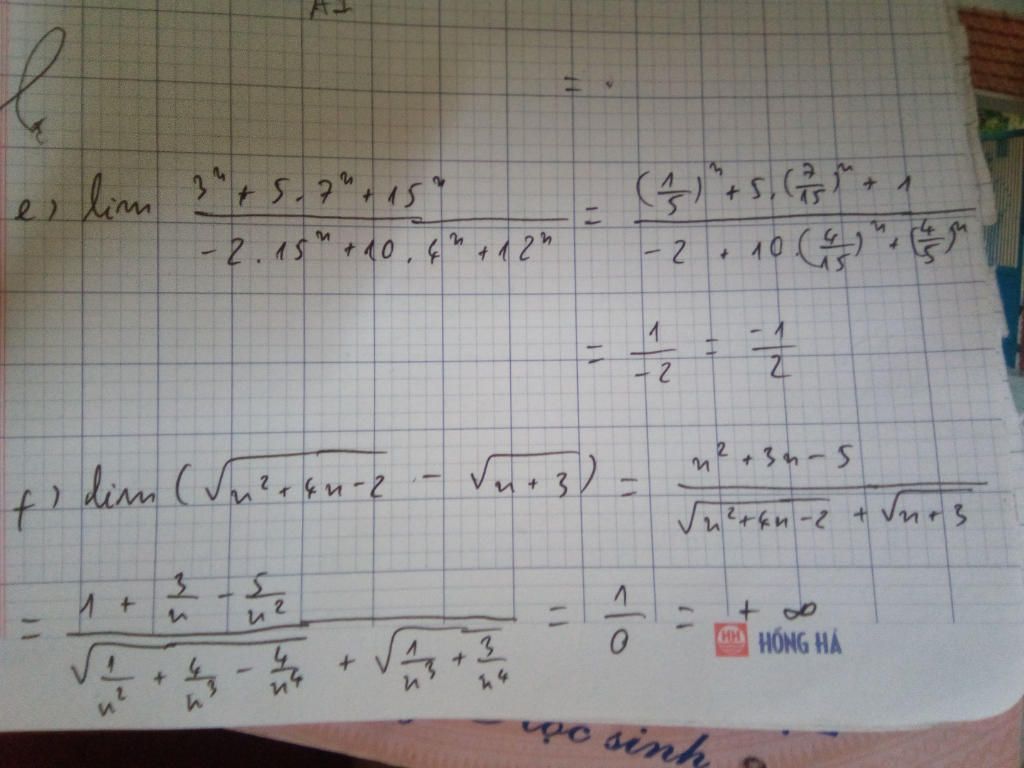 AI
= .
e) lim (3ⁿ + 5 . 7ⁿ + 15ⁿ) / (-2 . 15ⁿ + 10 . 4ⁿ + 12ⁿ) = ((1/5)ⁿ + 5 . (7/15)ⁿ + 1) / (-2 + 10 . (4/15)ⁿ + (4/5)ⁿ)
= 1/-2 = -1/2
f) lim (√(n² + 4n - 2) - √(n + 3)) = (n² + 3n - 5) / (√(n² + 4n - 2) + √(n + 3))
= (1 + 3/n - 5/n²) / (√(1/n² + 4/n³ - 4/n⁴) + √(1/n³ + 3/n⁴)) = 1/0 = + ∞
HH HỒNG HÀ
học sinh